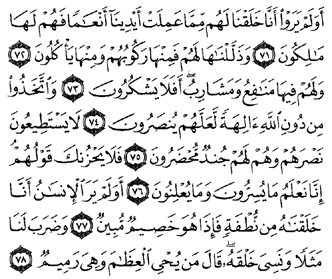 أَوَلَمْ يَرَوْا۟ أَنَّا خَلَقْنَا لَهُم مِّمَّا عَمِلَتْ أَيْدِينَآ أَنْعَٰمًا فَهُمْ لَهَا
مَٰلِكُونَ ٧١ وَذَلَّلْنَٰهَا لَهُمْ فَمِنْهَا رَكُوبُهُمْ وَمِنْهَا يَأْكُلُونَ ٧٢
وَلَهُمْ فِيهَا مَنَٰفِعُ وَمَشَارِبُ ۖ أَفَلَا يَشْكُرُونَ ٧٣ وَٱتَّخَذُوا۟
مِن دُونِ ٱللَّهِ ءَالِهَةً لَّعَلَّهُمْ يُنصَرُونَ ٧٤ لَا يَسْتَطِيعُونَ
نَصْرَهُمْ وَهُمْ لَهُمْ جُندٌ مُّحْضَرُونَ ٧٥ فَلَا يَحْزُنكَ قَوْلُهُمْ ۘ
إِنَّا نَعْلَمُ مَا يُسِرُّونَ وَمَا يُعْلِنُونَ ٧٦ أَوَلَمْ يَرَ ٱلْإِنسَٰنُ أَنَّا
خَلَقْنَٰهُ مِن نُّطْفَةٍ فَإِذَا هُوَ خَصِيمٌ مُّبِينٌ ٧٧ وَضَرَبَ لَنَا
مَثَلًا وَنَسِىَ خَلْقَهُۥ ۖ قَالَ مَن يُحْىِ ٱلْعِظَٰمَ وَهِىَ رَمِيمٌ ٧٨